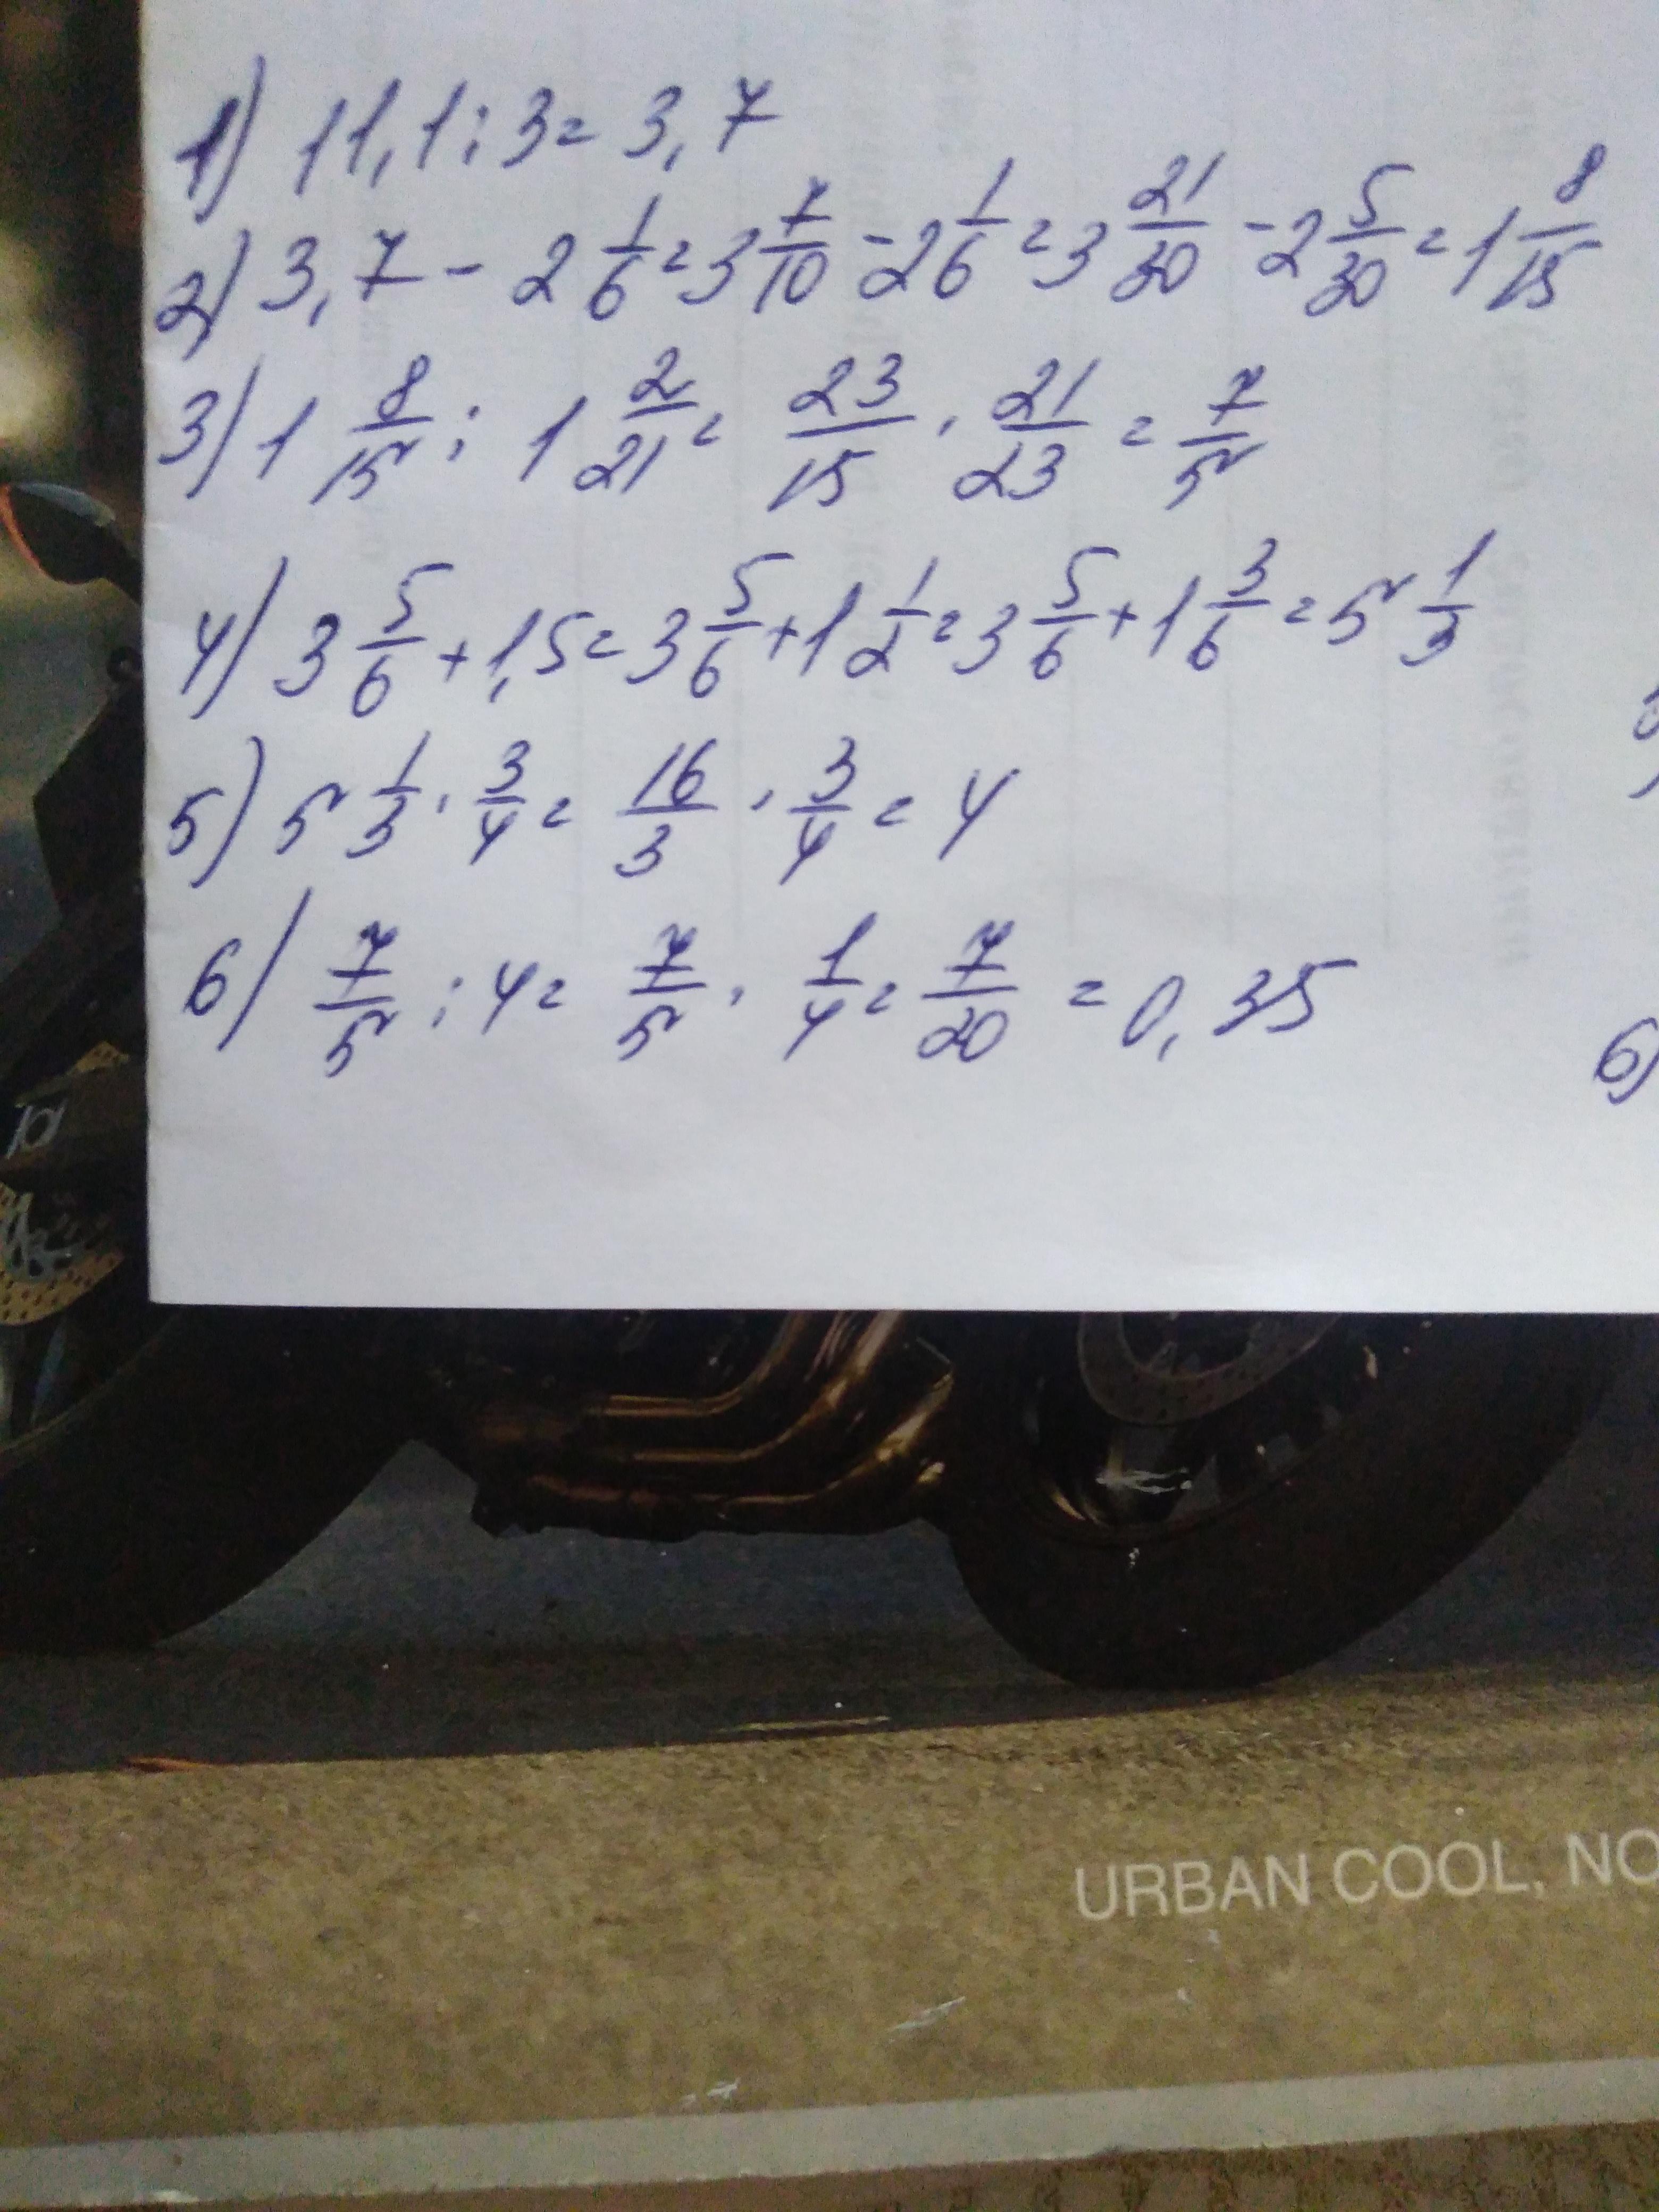 1) 11,1 : 3 = 3,7
2) 3,7 - 2 1/6 = 3 7/10 - 2 1/6 = 3 21/30 - 2 5/30 = 1 8/15
3) 1 8/15 : 1 2/21 = 23/15 · 21/23 = 7/5
4) 3 5/6 + 1,5 = 3 5/6 + 1 1/2 = 3 5/6 + 1 3/6 = 5 1/3
5) 5 1/3 · 3/4 = 16/3 · 3/4 = 4
6) 7/5 : 4 = 7/5 · 1/4 = 7/20 = 0,35
6)
URBAN COOL, NO